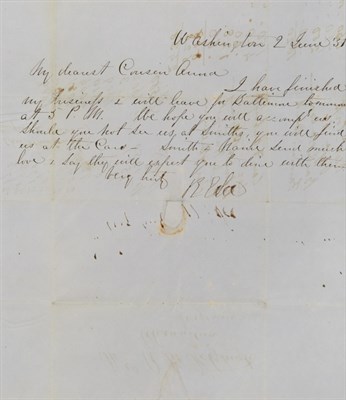 Washington 2 June 51
My dearest Cousin Anna
I have finished
my business & will leave for Baltimore tomorrow
att 5 P. M. We hope you will accomp. us.
Should you not see us at Smiths, you will find
us at the Cars - Smith & Nannie send much
love & say they will expect you to dine with them
Very truly
R E Lee